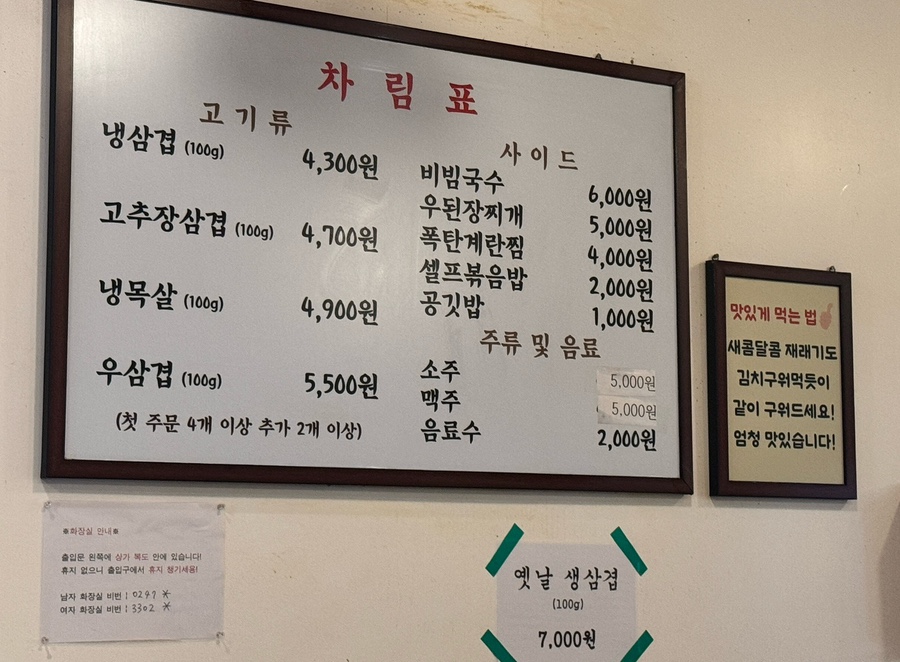 차림표
고기류
냉삼겹 (100g) 4,300원
고추장삼겹 (100g) 4,700원
냉목살 (100g) 4,900원
우삼겹 (100g) 5,500원
(첫 주문 4개 이상 추가 2개 이상)
사이드
비빔국수 6,000원
우된장찌개 5,000원
폭탄계란찜 4,000원
셀프볶음밥 2,000원
공깃밥 1,000원
주류 및 음료
소주 5,000원
맥주 5,000원
음료수 2,000원
맛있게 먹는 법
새콤달콤 재래기도
김치구워먹듯이
같이 구워드세요!
엄청 맛있습니다!
※화장실 안내※
출입문 왼쪽에 상가 복도 안에 있습니다!
휴지 없으니 출입구에서 휴지 챙기세용!
남자 화장실 비번 : 0297 *
여자 화장실 비번 : 3302 *
옛날 생삼겹
(100g)
7,000원